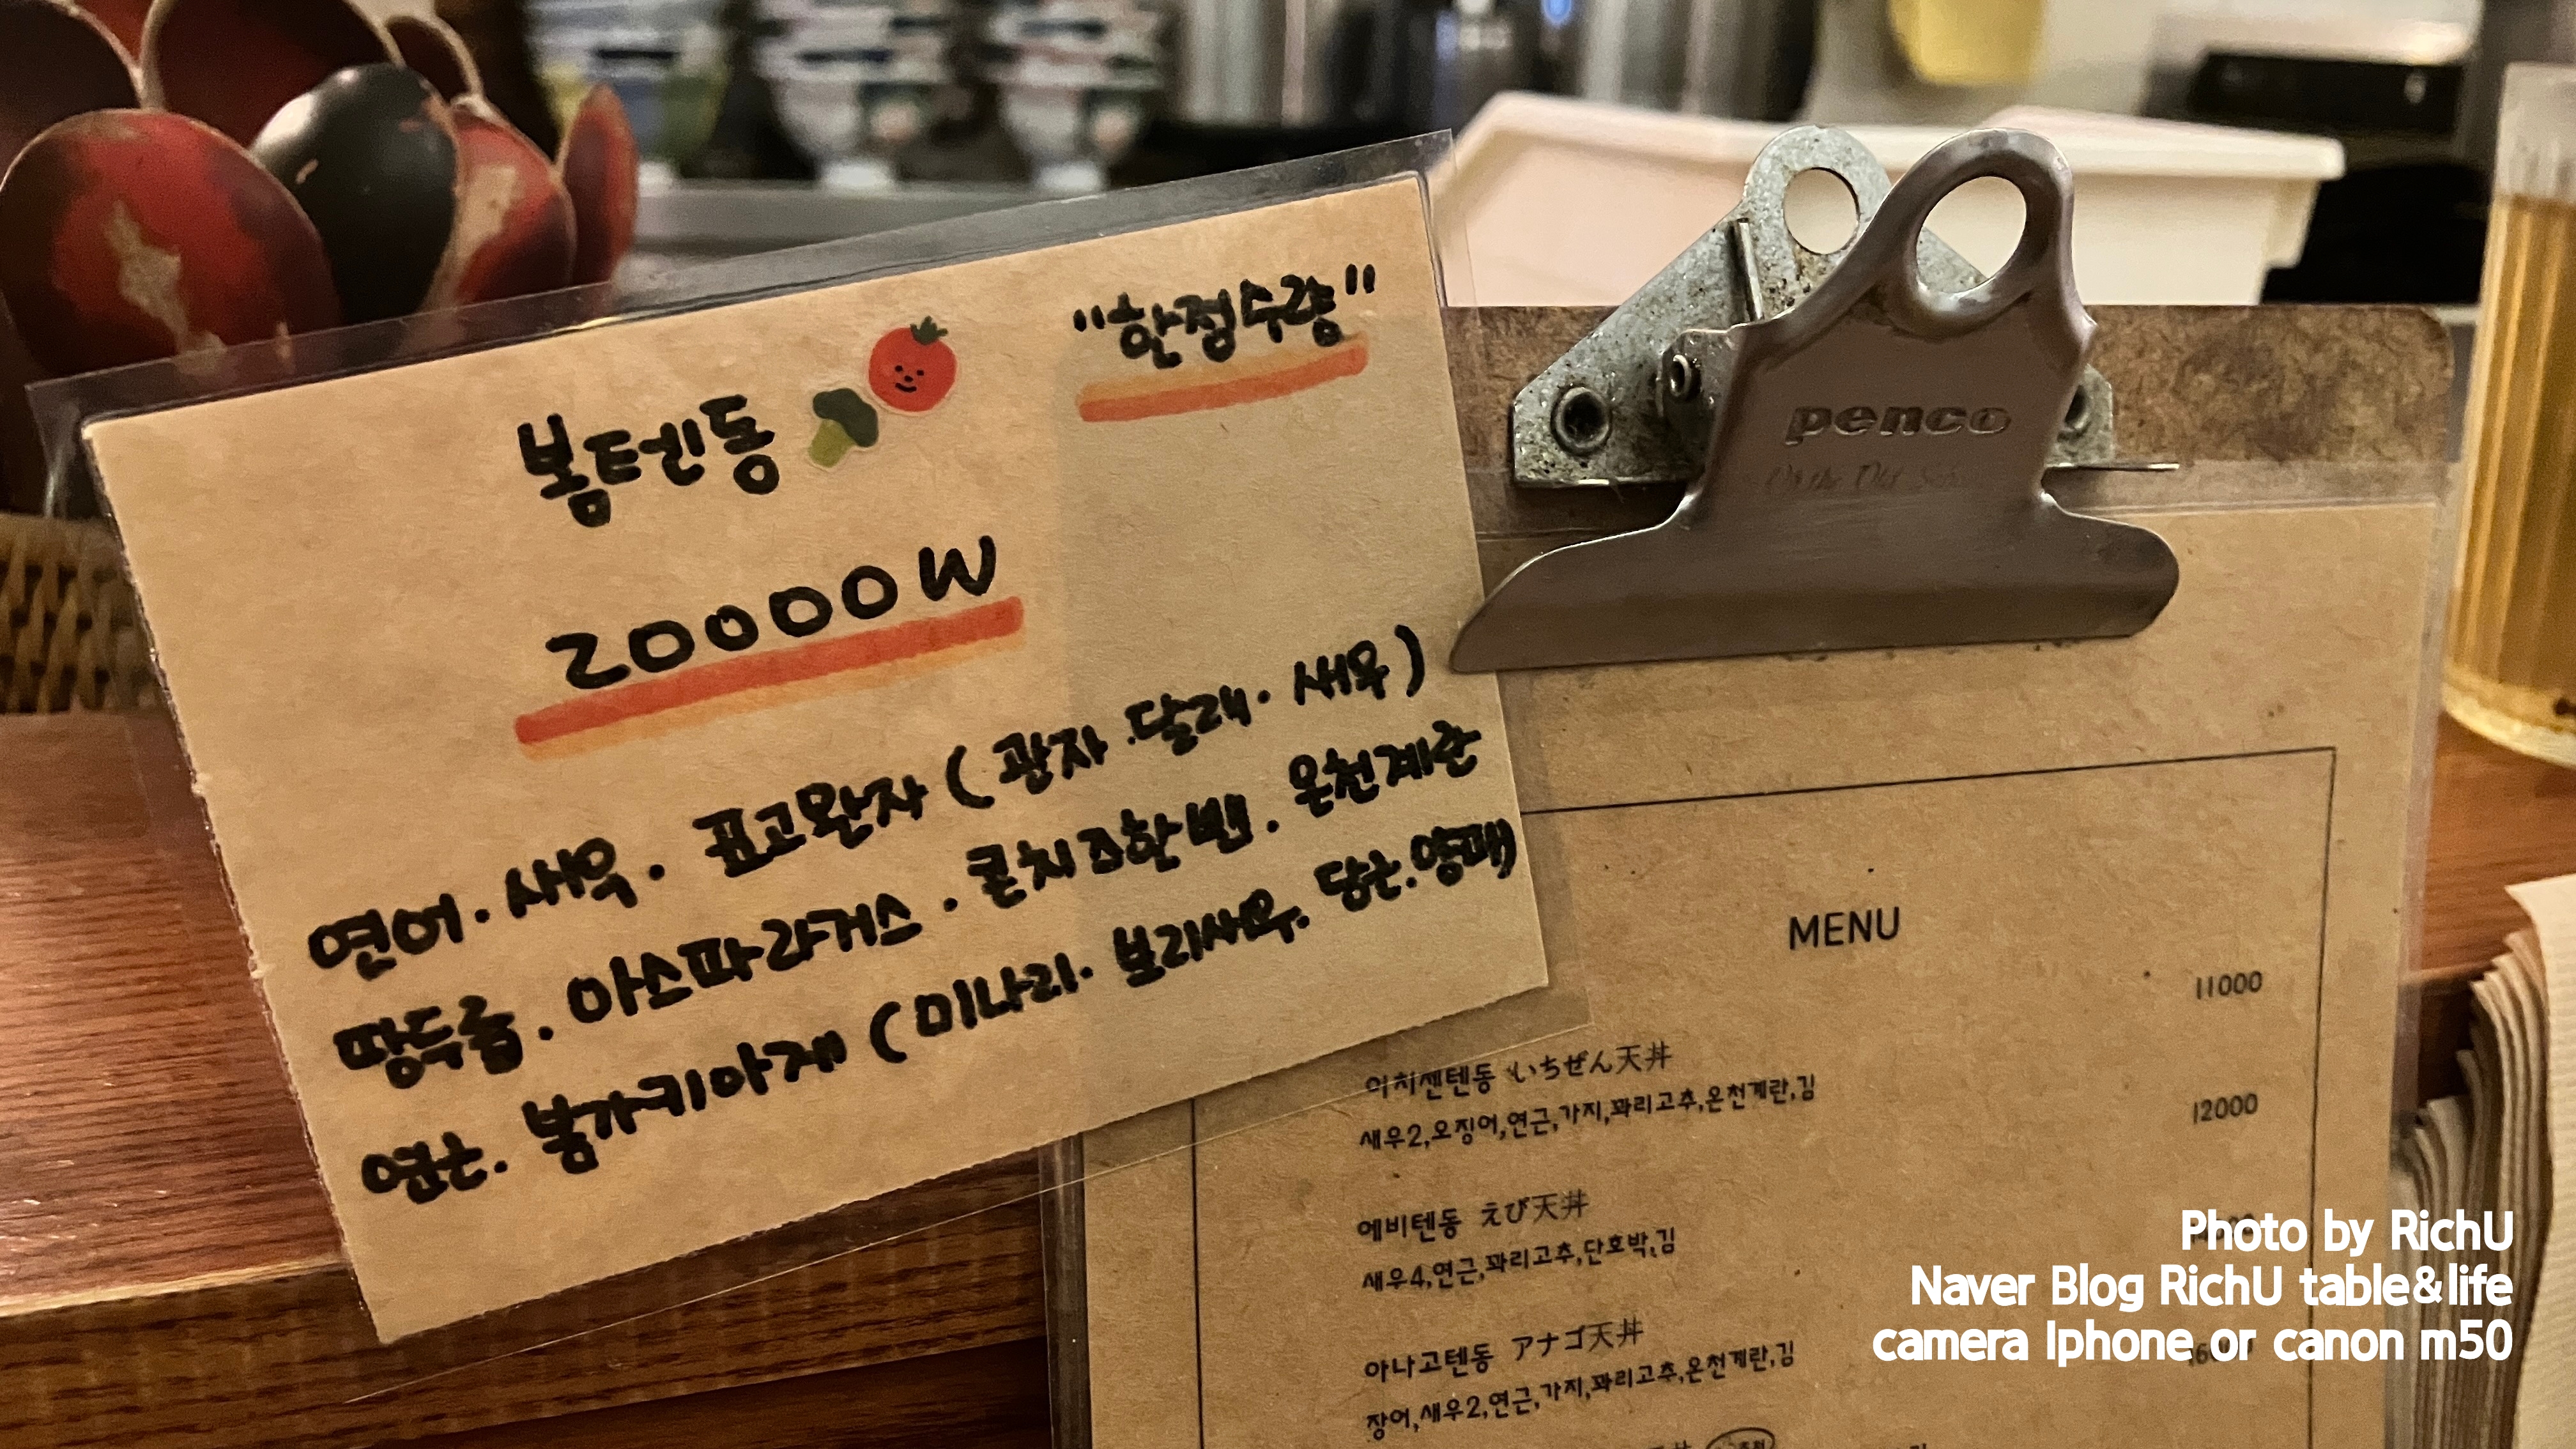 "한정수량"
봄텐동
20000W
연어. 새우. 표고완자 (관자.달래.새우)
땅두릅. 아스파라거스. 콘치즈한뻰. 온천계란
연근. 봄가키아게 (미나리. 보리새우. 당근.양파)
penco
MENU
11000
이치젠텐동 いちぜん天丼
새우2,오징어,연근,가지,꽈리고추,온천계란,김
12000
에비텐동 えび天丼
새우4,연근,꽈리고추,단호박,김
아나고텐동 アナゴ天丼
장어,새우2,연근,가지,꽈리고추,온천계란,김
Photo by RichU
Naver Blog RichU table&life
camera Iphone or canon m50